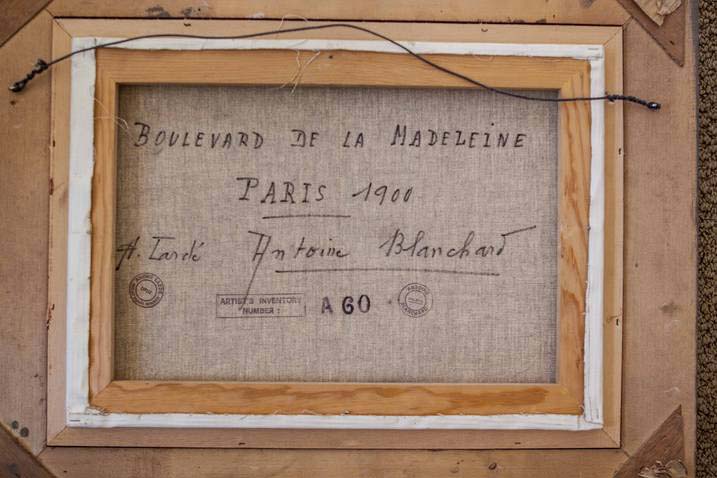 BOULEVARD DE LA MADELEINE
PARIS 1900
A. Tardé Antoine Blanchard
ARTIST'S INVENTORY
NUMBER :
A 60